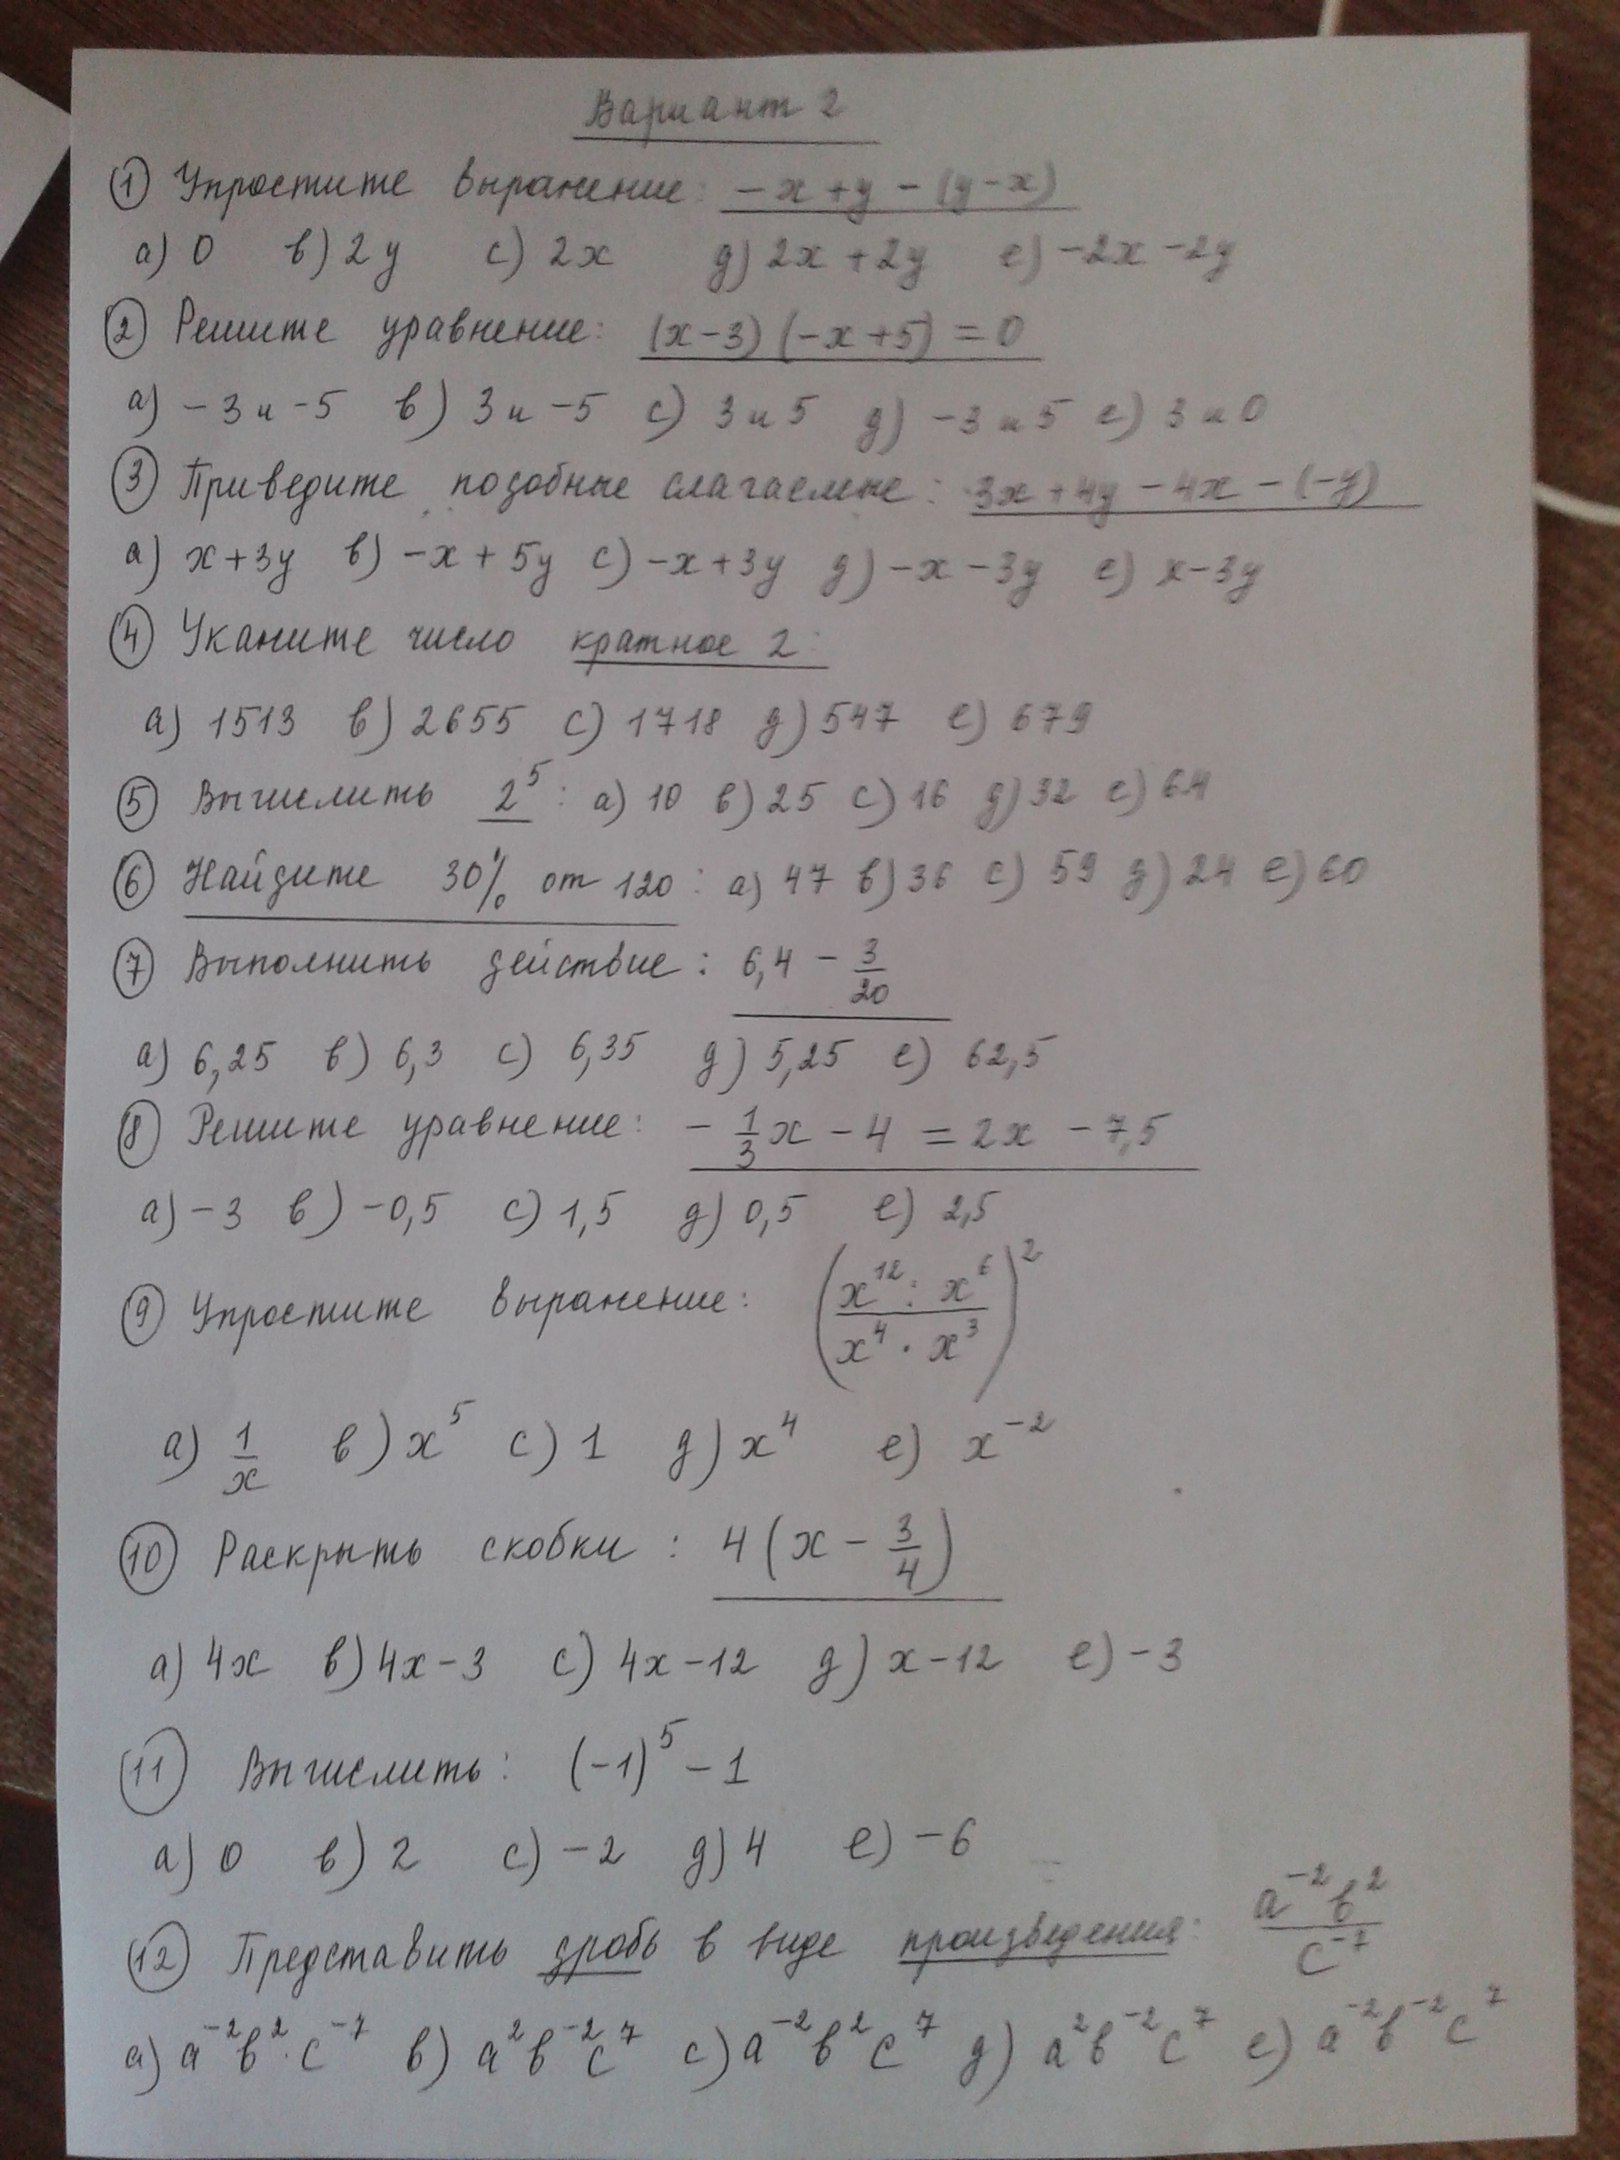 Вариант 2
① Упростите выражение: -x+y-(y-x)
а) 0 в) 2y с) 2x д) 2x+2y е) -2x-2y
② Решите уравнение: (x-3)(-x+5)=0
а) -3 и -5 в) 3 и -5 с) 3 и 5 д) -3 и 5 е) 3 и 0
③ Приведите подобные слагаемые: 3x+4y-4x-(-y)
а) x+3y в) -x+5y с) -x+3y д) -x-3y е) x-3y
④ Укажите число кратное 2:
а) 1513 в) 2655 с) 1718 д) 547 е) 679
⑤ Вычислить 2⁵: а) 10 в) 25 с) 16 д) 32 е) 64
⑥ Найдите 30% от 120: а) 47 в) 36 с) 59 д) 24 е) 60
⑦ Выполнить действие: 6,4 - 3/20
а) 6,25 в) 6,3 с) 6,35 д) 5,25 е) 62,5
⑧ Решите уравнение: -1/3x - 4 = 2x - 7,5
а) -3 в) -0,5 с) 1,5 д) 0,5 е) 2,5
⑨ Упростите выражение: (x¹² : x⁶ / x⁴ · x³)²
а) 1/x в) x⁵ с) 1 д) x⁴ е) x⁻²
⑩ Раскрыть скобки: 4(x - 3/4)
а) 4x в) 4x-3 с) 4x-12 д) x-12 е) -3
⑪ Вычислить: (-1)⁵ - 1
а) 0 в) 2 с) -2 д) 4 е) -6
⑫ Представить дробь в виде произведения: a⁻²b²/c⁻⁷
а) a⁻²b²·c⁻⁷ в) a²b⁻²c⁷ с) a⁻²b²c⁷ д) a²b⁻²c⁷ е) a⁻²b⁻²c⁷